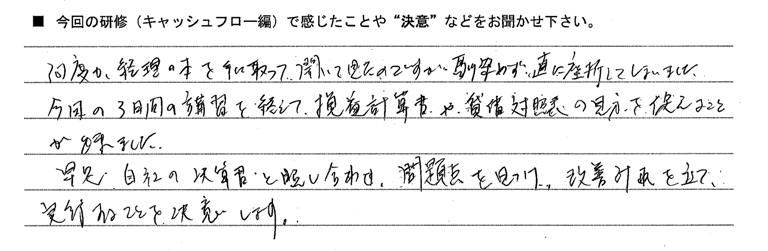 ■ 今回の研修（キャッシュフロー編）で感じたことや“決意”などをお聞かせ下さい。
何度か、経理の本を手に取って、開いて見たのですが、馴染めず、直に挫折してしまいました。
今回の3日間の講習を経て、損益計算書や、貸借対照表の見方を覚えること
が出来ました。
早速、自社の決算書と照し合わせ、問題点を見つけ、改善計画を立て、
実行することを決意します。